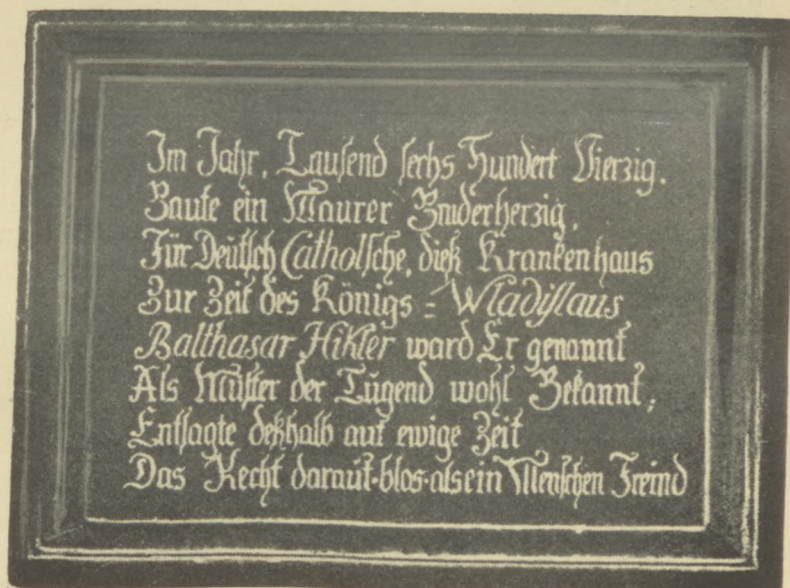 Im Jahr, Tausend sechs Hundert Vierzig.
Baute ein Maurer Bruderherzig,
Für Deutsch Catholsche, dieß Krankenhaus
Zur Zeit des Königs = Wladislaus
Balthasar Hikler ward Er genannt
Als Muster der Tugend wohl Bekannt;
Entsagte deßhalb auf ewige Zeit
Das Recht darauf-blos-als ein Menschen Freind